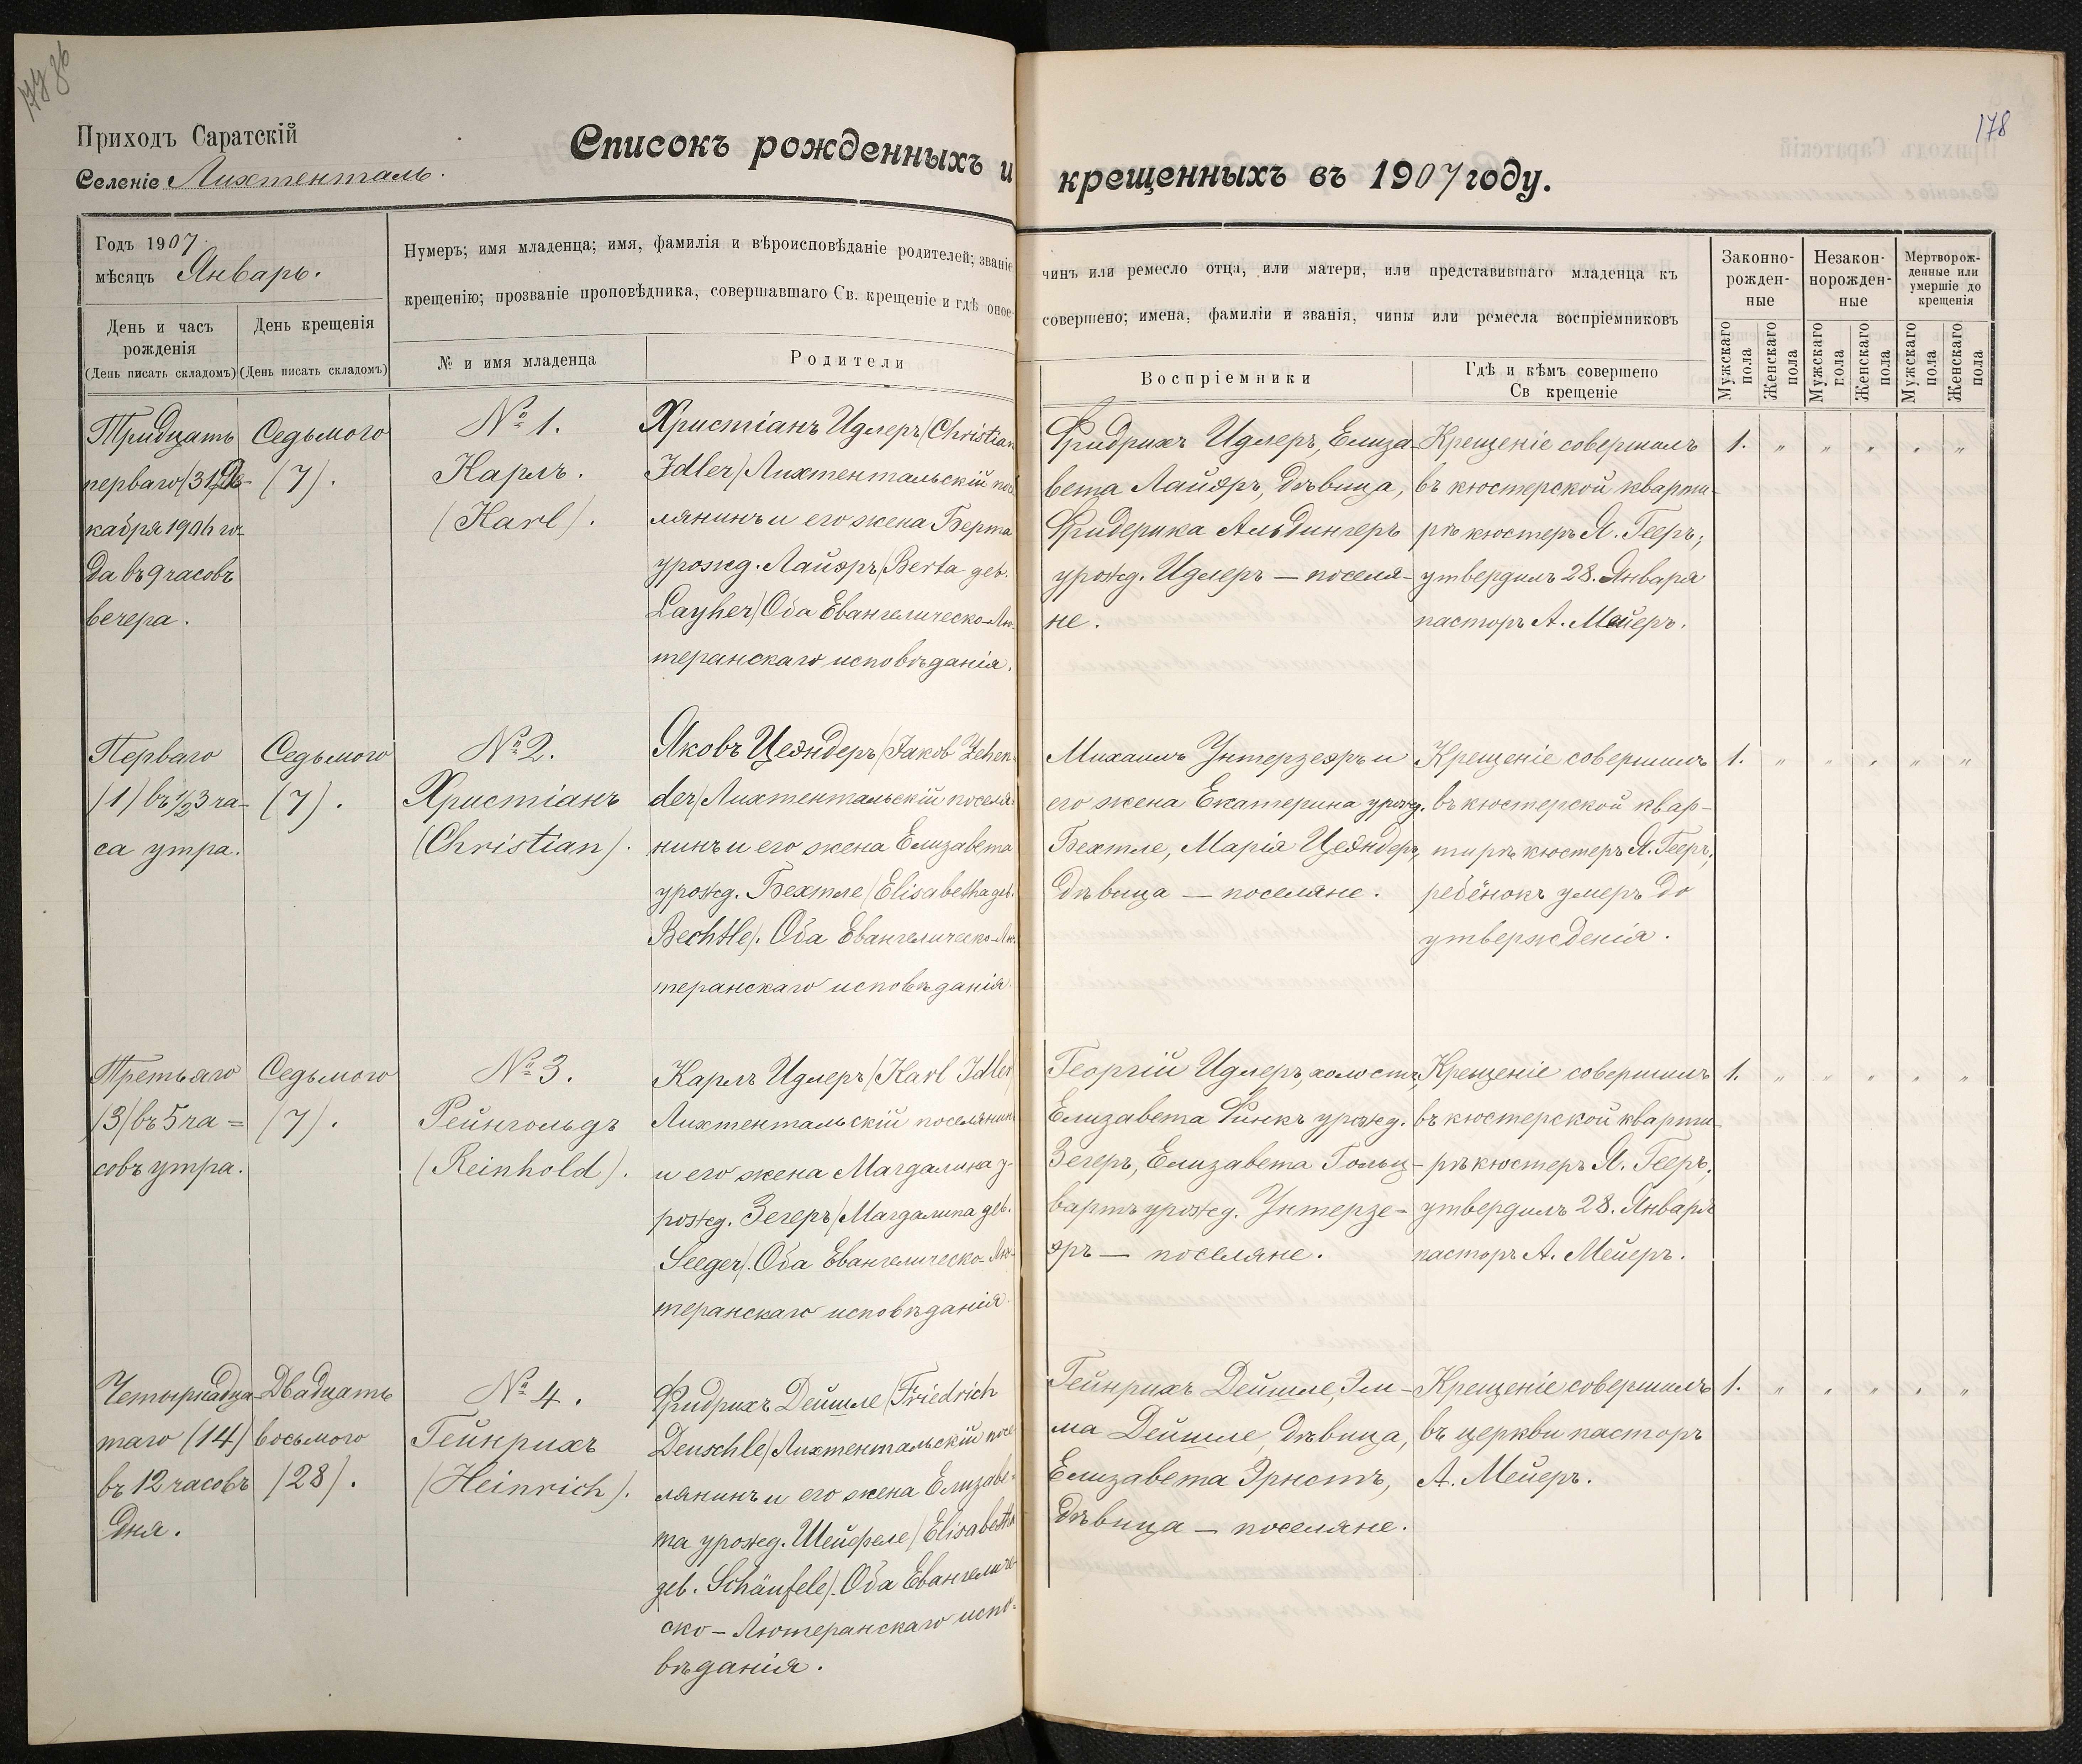 178
Приходъ Саратскій
Селеніе Лихтенталь.
Списокъ рожденныхъ и крещенныхъ въ 1907 году.
Годъ 1907.
мѣсяцъ Январь.
Нумеръ; имя младенца; имя, фамилія и вѣроисповѣданіе родителей; званіе
крещенію; прозваніе проповѣдника, совершавшаго Св. крещеніе и гдѣ оное
День и часъ
рожденія
(День писать складомъ)
День крещенія
(День писать складомъ)
№ и имя младенца
Родители
чинъ или ремесло отца, или матери, или представившаго младенца къ
совершено; имена, фамиліи и званія, чины или ремесла воспріемниковъ
Воспріемники
Гдѣ и кѣмъ совершено
Св крещеніе
Законно-
рожден-
ные
Незакон-
норожден-
ные
Мертворож-
денные или
умершіе до
крещенія
Мужскаго
пола
Женскаго
пола
Мужскаго
пола
Женскаго
пола
Мужскаго
пола
Женскаго
пола
Тридцать
перваго (31) Де-
кабря 1906 го-
да въ 9 часовъ
вечера.
Седьмого
(7).
№ 1.
Карлъ.
(Karl).
Христіанъ Идлеръ (Christian
Idler) Лихтентальскій посе
лянинъ и его жена Берта
урожд. Лайэръ (Berta geb.
Layher) Оба Евангелическо-Лю-
теранскаго исповѣданія.
Фридрихъ Идлеръ, Елиза
вета Лайэръ, дѣвица,
Фридерика Альдингеръ
урожд. Идлеръ — поселя-
не.
Крещеніе совершилъ
въ кюстерской кварти-
рѣ кюстеръ Я. Гееръ;
утвердилъ 28. Января
пасторъ А. Мейеръ.
1. " " " " "
Перваго
(1) въ ½3 ча-
са утра.
Седьмого
(7).
№ 2.
Христіанъ
(Christian).
Яковъ Цеэндеръ (Jakob Zehen-
der) Лихтентальскій поселя-
нинъ и его жена Елизавета
урожд. Бехтле (Elisabetha geb.
Bechtle). Оба Евангелическо-Лю-
теранскаго исповѣданія.
Михаилъ Унтерзеэръ и
его жена Екатерина урожд.
Бехтле, Марія Цеэндеръ,
дѣвица — поселяне.
Крещеніе совершилъ
въ кюстерской квар-
тирѣ кюстеръ Я. Гееръ;
ребёнокъ умеръ до
утвержденія.
1. " " " " "
Третьяго
(3) въ 5 ча=
совъ утра.
Седьмого
(7).
№ 3.
Рейнгольдъ
(Reinhold).
Карлъ Идлеръ (Karl Idler)
Лихтентальскій поселянинъ
и его жена Магдалина у-
рожд. Зегеръ (Магдалина geb.
Seeger). Оба Евангелическо-Лю-
теранскаго исповѣданія.
Георгій Идлеръ, холостъ,
Елизавета Финкъ урожд.
Зегеръ, Елизавета Гольц-
вартъ урожд. Унтерзе-
эръ — поселяне.
Крещеніе совершилъ
въ кюстерской кварти-
рѣ кюстеръ Я. Гееръ;
утвердилъ 28. Января
пасторъ А. Мейеръ.
1. " " " " "
Четырнадца-
таго (14)
въ 12 часовъ
дня.
Двадцать
восьмого
(28).
№ 4.
Гейнрихъ
(Heinrich).
Фридрихъ Дейшле (Friedrich
Deuschle) Лихтентальскій посе
лянинъ и его жена Елизаве-
та урожд. Шейфеле (Elisabetha
geb. Schäufele). Оба Евангеличе-
ско-Лютеранскаго испо-
вѣданія.
Гейнрихъ Дейшле, Эм-
ма Дейшле, дѣвица,
Елизавета Эрнстъ,
дѣвица — поселяне.
Крещеніе совершилъ
въ церкви пасторъ
А. Мейеръ.
1. " " " " "